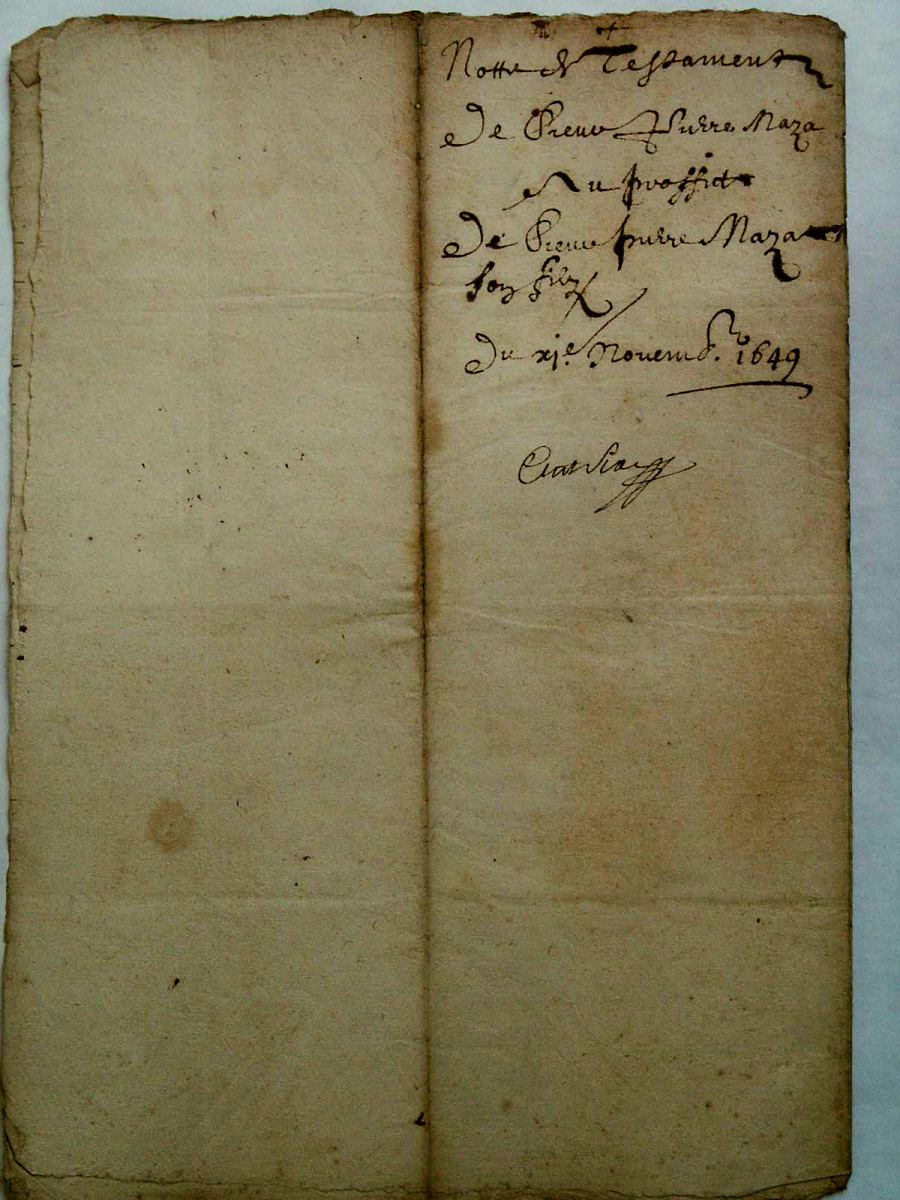 Notte de Testament
De Pierre Maza
Au proffict
De Pierre Maza
son filz
Du xje Novemb. 1649